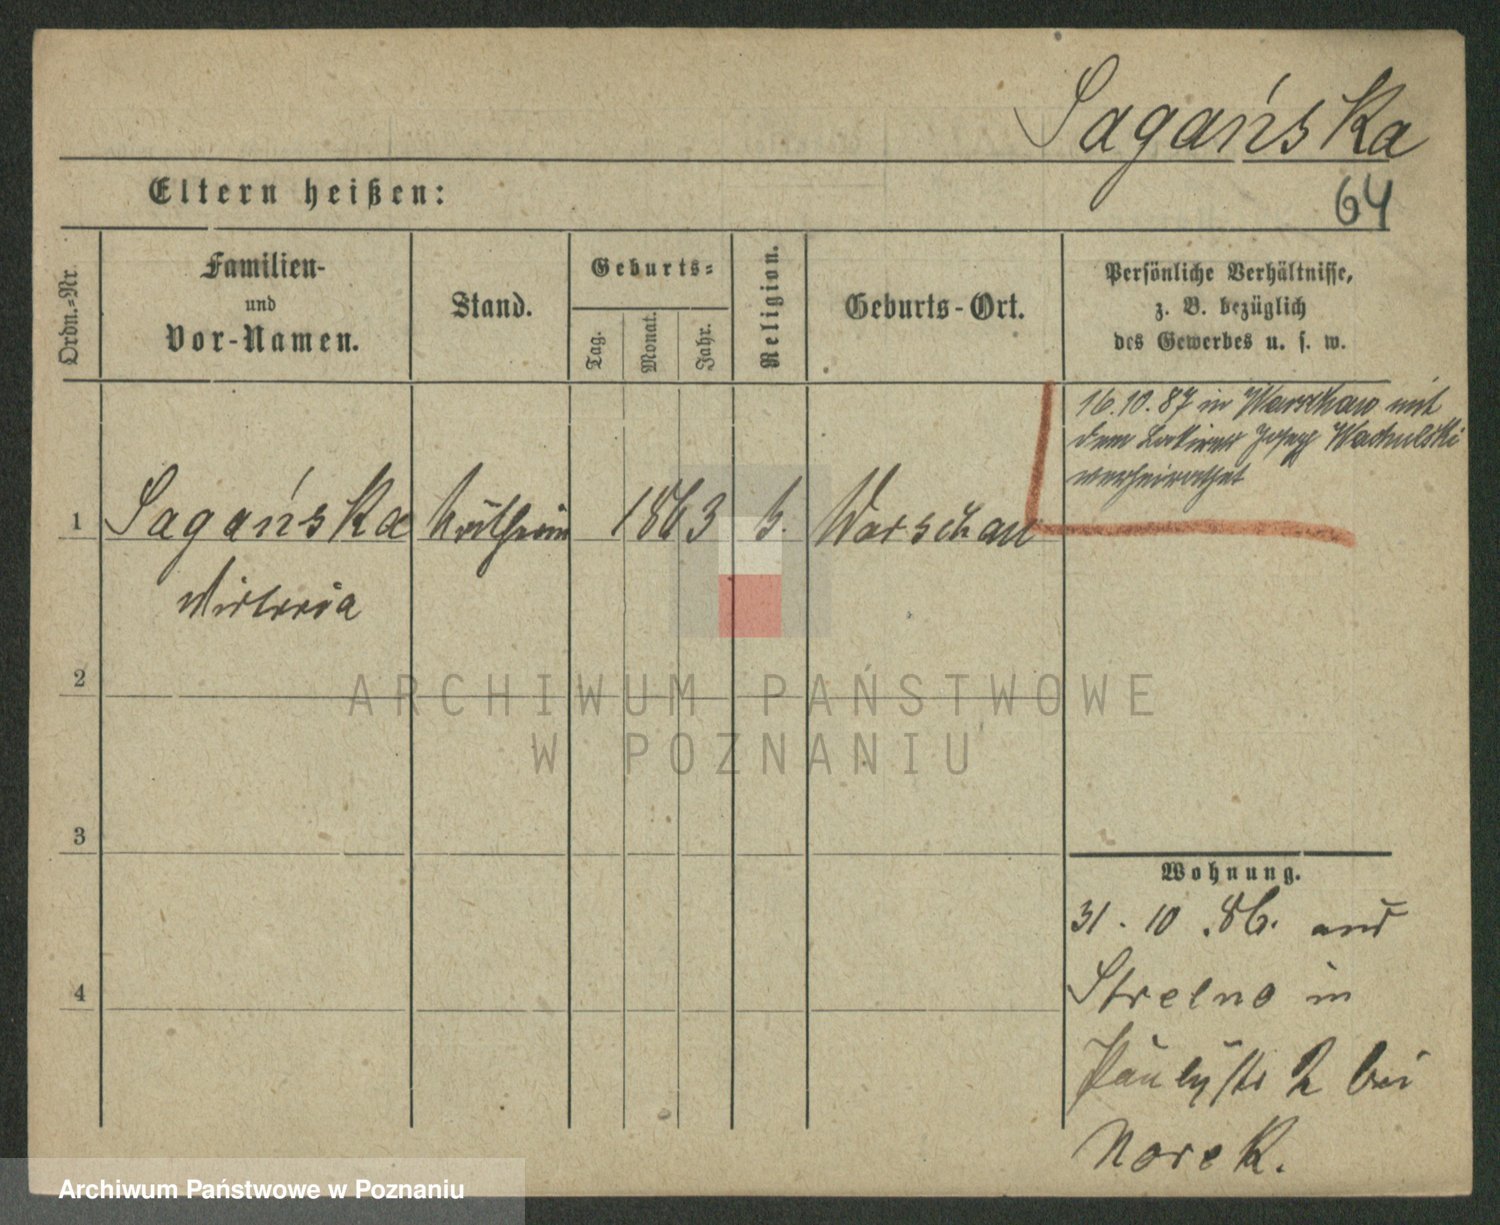 Sagańska
64
Eltern heißen:
Ordn.-Nr.
Familien-
und
Vor-Namen.
Stand.
Geburts-
Tag.
Monat.
Jahr.
Religion.
Geburts-Ort.
Persönliche Verhältnisse,
z. B. bezüglich
des Gewerbes u. s. w.
16.10.87 in Warschau mit
dem Josef Wachulski
verheirathet
1
Sagańska
1863
k.
Warschau
Victoria
2
3
4
Wohnung.
31. 10. 86. aus
Strelno in
2 bei
Norek.
ARCHIWUM PAŃSTWOWE
W POZNANIU
Archiwum Państwowe w Poznaniu